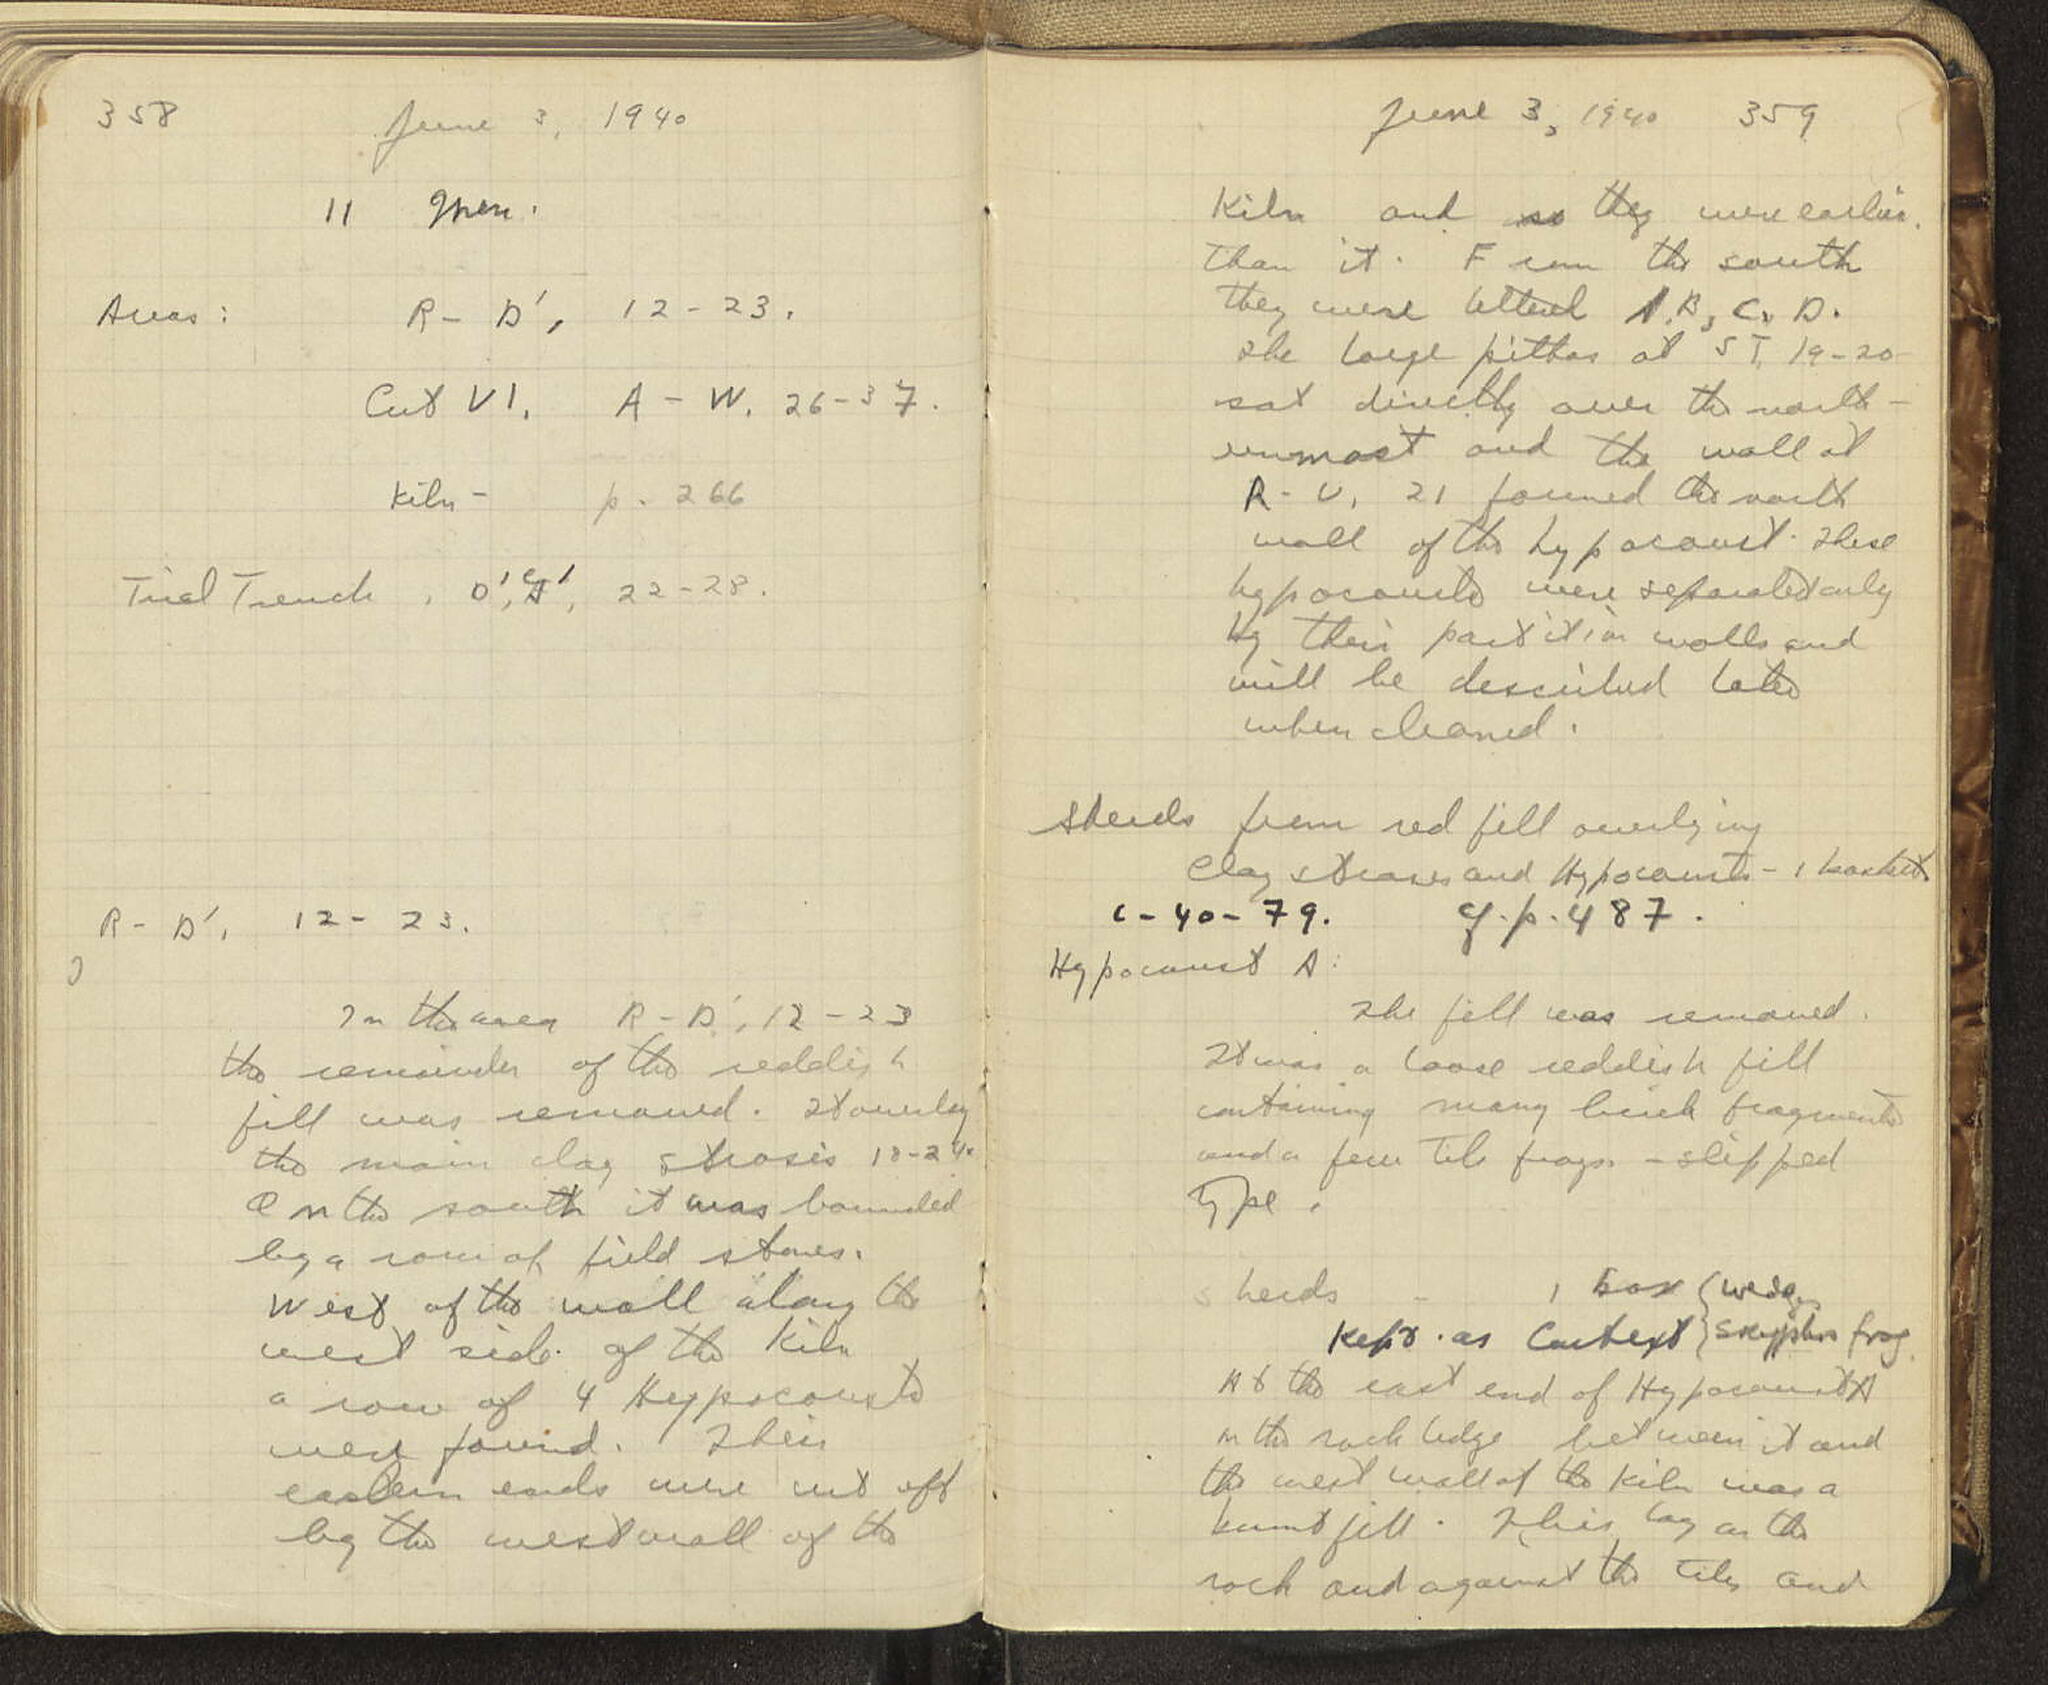 358
June 3, 1940
11 men.
Areas: R - D', 12 - 23.
Cut VI, A - W, 26 - 37.
Kiln - p. 266
Trial Trench, O', 22 - 28.
R - D', 12 - 23.
In the area R - D', 12 - 23
the remainder of the reddish
fill was removed. It overlay
the main clay strosis 18-24.
On the south it was bounded
by a row of field stones.
West of the wall along the
west side of the Kiln
a row of 4 Hypocausts
were found. Their
eastern ends were cut off
by the west wall of the
June 3, 1940 359
Kiln and so they were earlier
than it. From the south
they were lettered A, B, C, D.
The large pithos at ST, 19-20
sat directly over the north-
ernmost and the wall at
R - U, 21 formed the north
wall of the hypocaust. These
hypocausts were separated only
by their partition walls and
will be described later
when cleaned.
Sherds from red fill overlying
clay stroses and Hypocausts - 1 basket
C-40-79. cf. p. 487.
Hypocaust A:
The fill was removed.
It was a loose reddish fill
containing many brick fragments
and a few tile frags. - slipped
type.
Sherds - 1 box
Kept as Context Skyphos frag.
At the east end of Hypocaust A
on the rock ledge between it and
the west wall of the Kiln was a
burnt fill. This lay on the
rock and against the tiles and